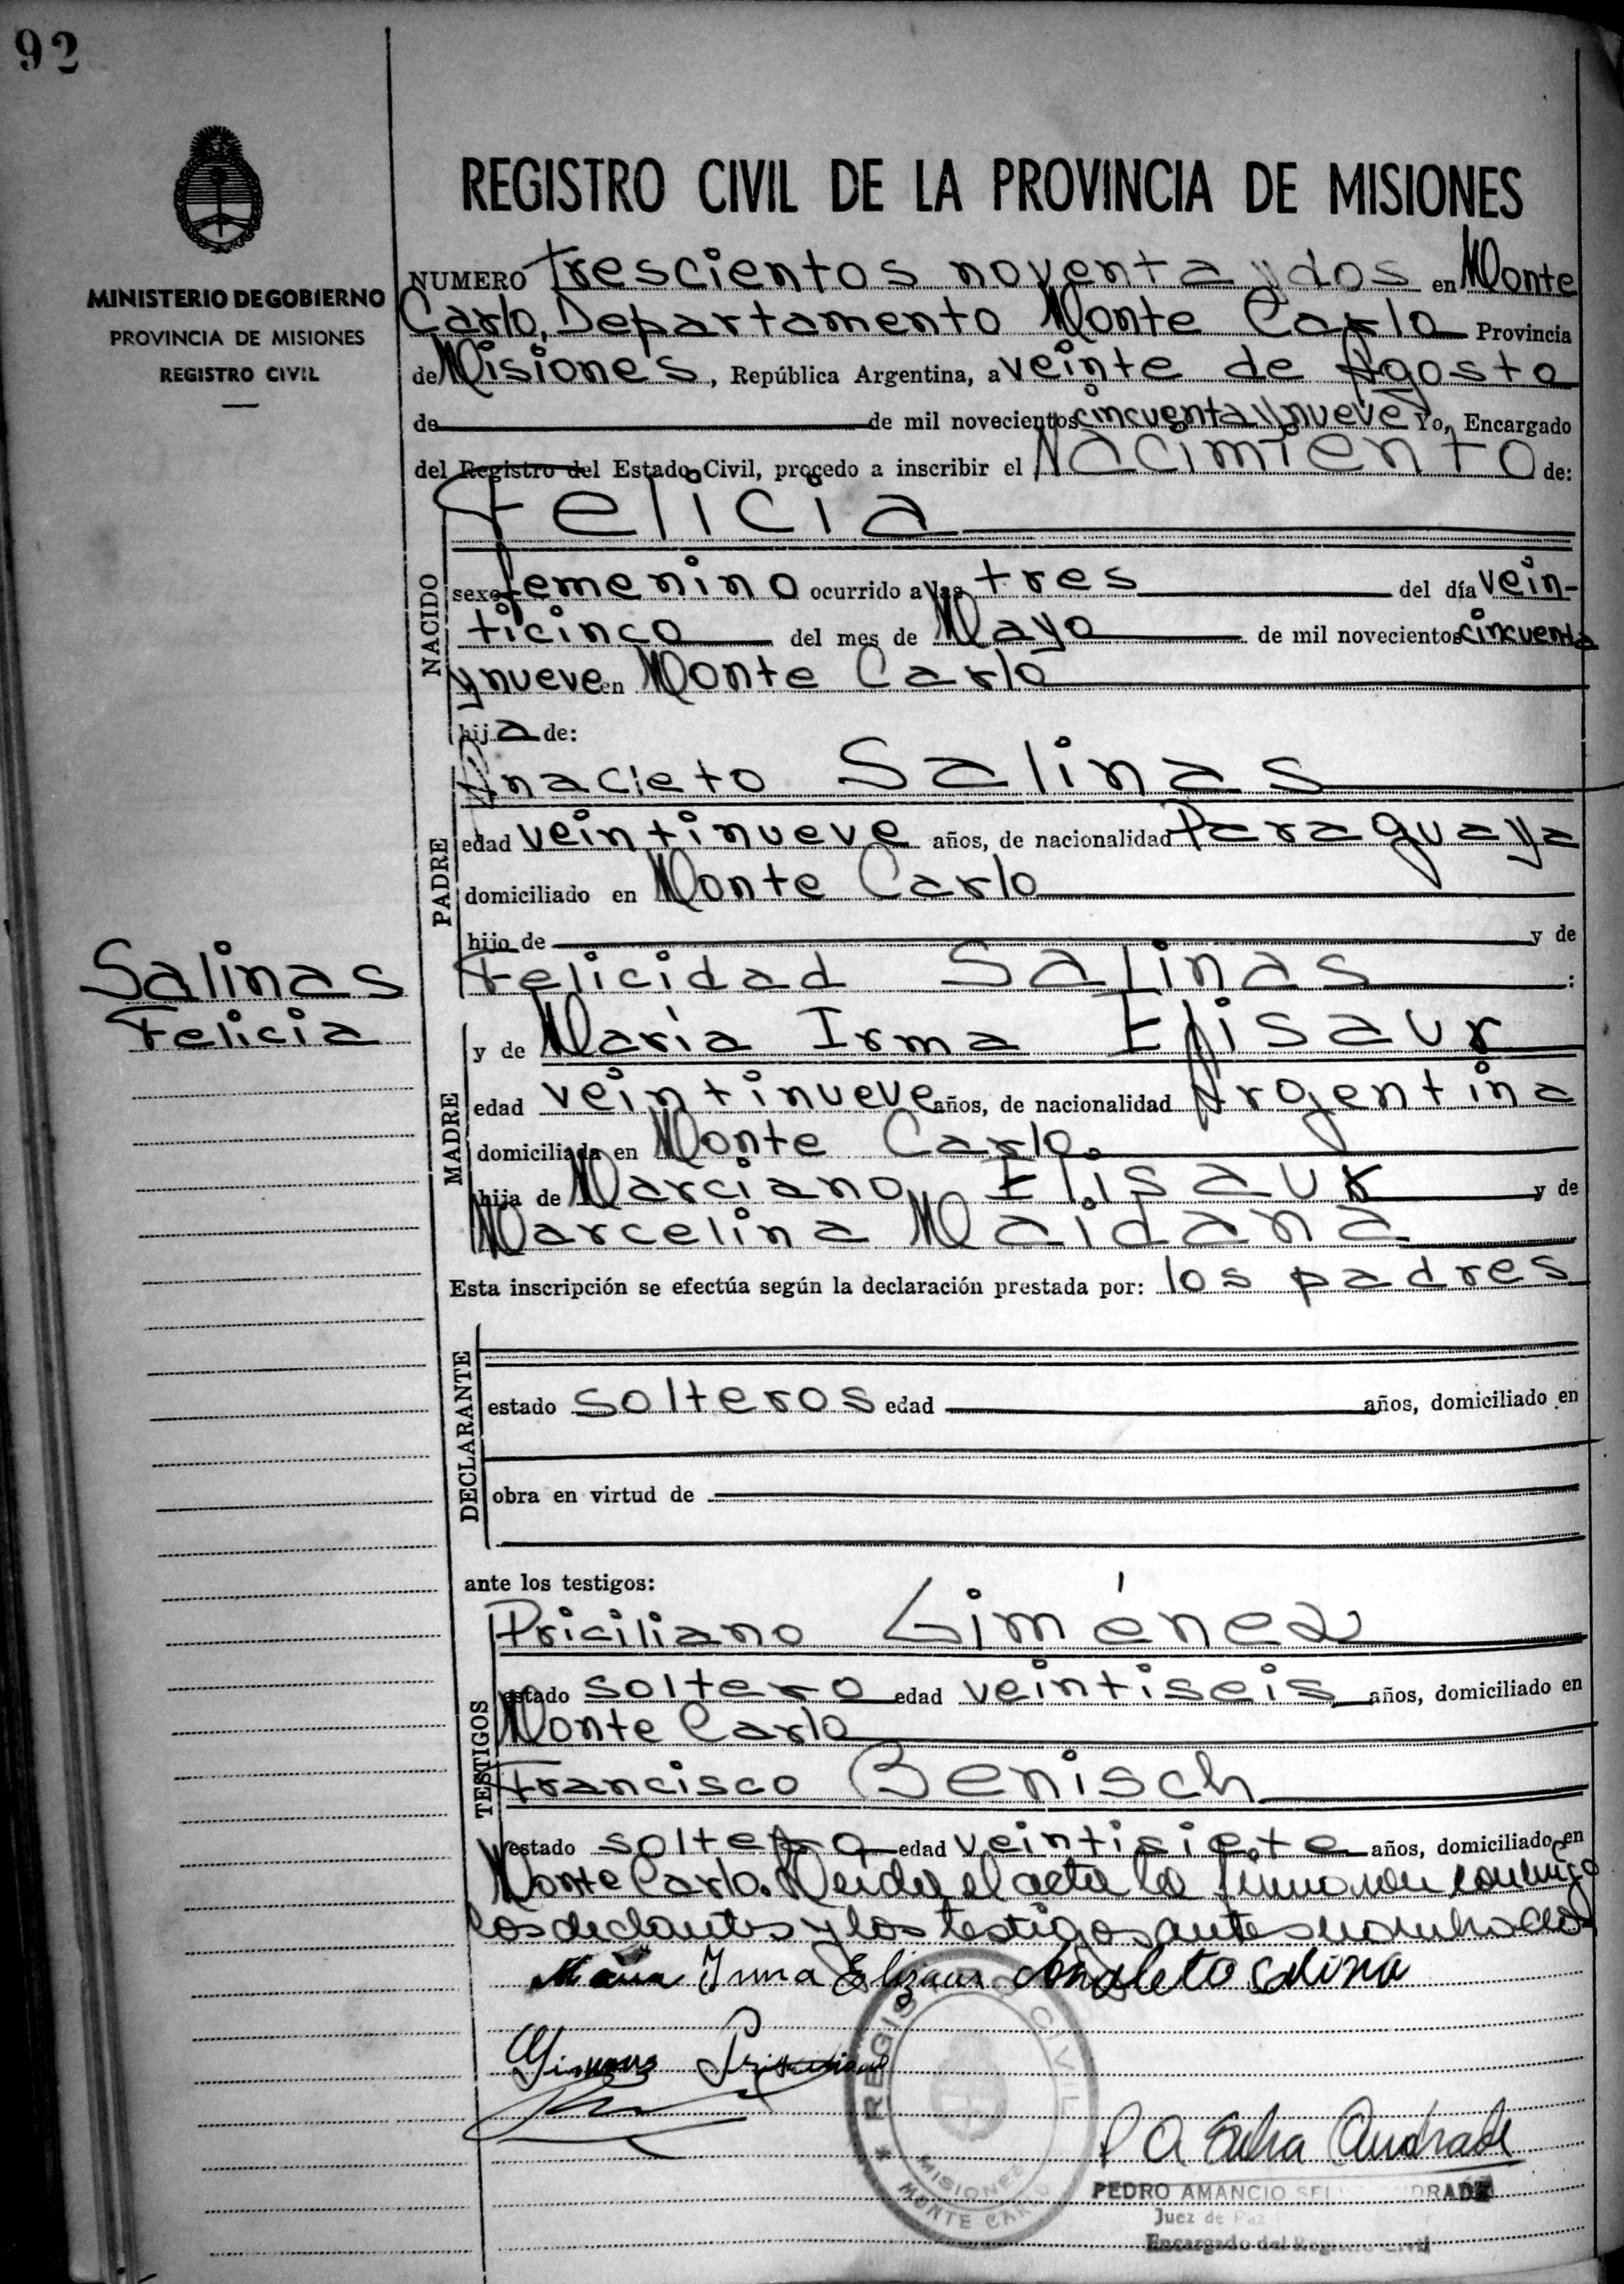 92
MINISTERIO DE GOBIERNO
PROVINCIA DE MISIONES
REGISTRO CIVIL
REGISTRO CIVIL DE LA PROVINCIA DE MISIONES
NUMERO trescientos noventa y dos en Monte
Carlo, Departamento Monte Carlo Provincia
de Misiones, República Argentina, a veinte de Agosto
de de mil novecientos cincuenta y nueve Yo, Encargado
del Registro del Estado Civil, procedo a inscribir el Nacimiento de:
NACIDO
Felicia
sexo femenino ocurrido a las tres del día vein-
ticinco del mes de Mayo de mil novecientos cincuenta
y nueve en Monte Carlo
hija de:
PADRE
Anacleto Salinas
edad veintinueve años, de nacionalidad Paraguaya
domiciliado en Monte Carlo
hijo de y de
Felicidad Salinas :
Salinas
Felicia
MADRE
y de María Irma Elisaur
edad veintinueve años, de nacionalidad Argentina
domiciliada en Monte Carlo.
hija de Marciano Elisaur y de
Marcelina Maidana
Esta inscripción se efectúa según la declaración prestada por: los padres
DECLARANTE
estado solteros edad años, domiciliado en
obra en virtud de
ante los testigos:
TESTIGOS
Priciliano Giménez
estado soltero edad veintiseis años, domiciliado en
Monte Carlo
Francisco Benisch
estado soltero edad veintisiete años, domiciliado en
Monte Carlo. Leida el acta la firmaron conmigo
los declantes y los testigos antes nombrados
María Irma Elizaur Anacleto Salina
REGISTRO CIVIL
MISIONES
MONTE CARLO
P A Selva Andrade
PEDRO AMANCIO SELVA ANDRADE
Juez de Paz
Encargado del Registro Civil